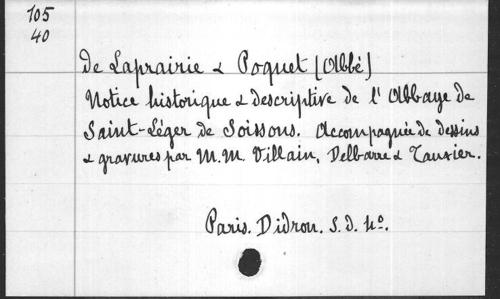 105
40
de Laprairie & Poquet (Abbé)
Notice historique & descriptive de l'Abbaye de
Saint-Léger de Soissons. Accompagnée de dessins
& gravures par M.M. Villain, Delbarre & Tauxier.
Paris. Didron. S.d. 4º.